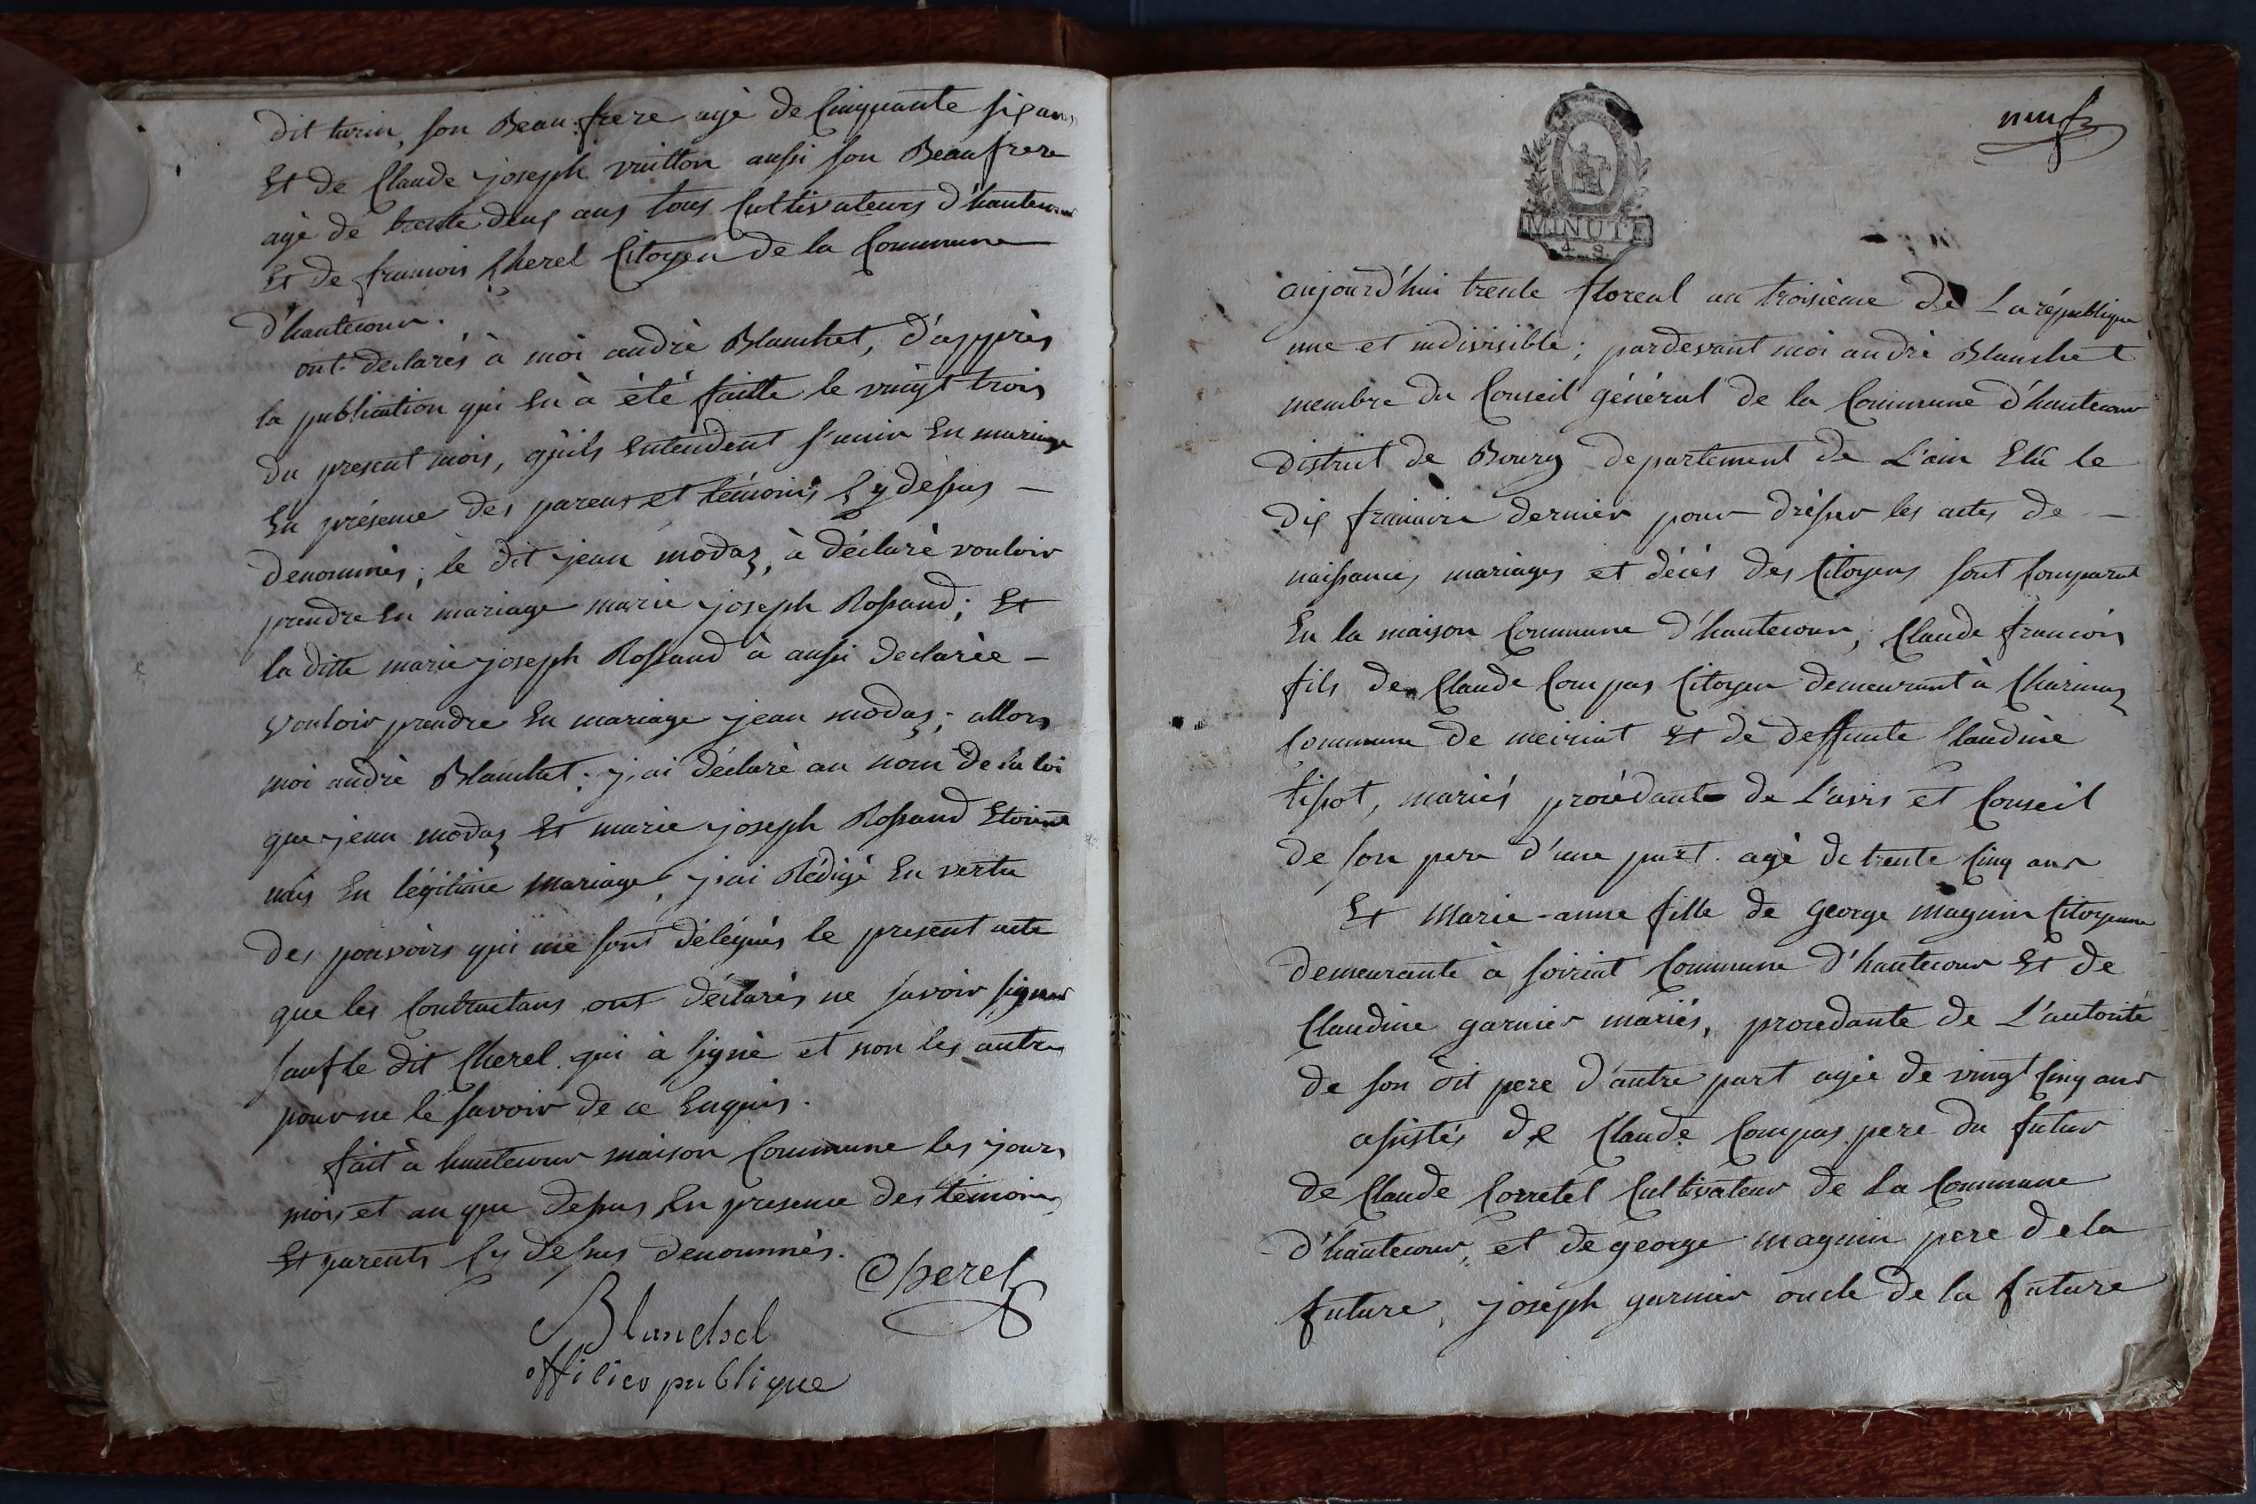 dit turin, son Beau frere agé de Cinquante six ans
Et de Claude joseph vuitton aussi son Beau frere
agé de trente deux ans tous Cultivateurs d'hautecour
Et de francois Cherel Citoyen de la Commune
d'hautecour.
ont declarés à moi andrè Blanchet, d'apprès
la publication qui En à été faitte le vingt trois
du present mois, qu'ils Entendent s'unir En mariage
En présence des parens et témoins Cy dessus –
denommés; le dit jean modaz, à déclaré vouloir
prendre En mariage marie joseph Rossand; Et
la ditte marie joseph Rossand à aussi declarée –
vouloir prendre En mariage jean modaz; allors
moi andrè Blanchet; j'ai déclaré au nom de la loi
que jean modaz Et marie joseph Rossand Etoient
unis En légitime mariage, j'ai Rédigé En vertu
des pouvoirs qui me sont délégués le present acte
que les Contractans ont déclarés ne savoir signer
sauf le dit Cherel qui à signé et non les autres
pour ne le savoir de ce Enquis.
fait à hautecour maison Commune les jours
mois et an que dessus En presence des témoins
Et parents Cy dessus denommés.
Cherel
Blanchet
officier publique
neuf
MINUTE
4. S.
aujourd'hui trente floreal an troisième de La république
une et indivisible; pardevant moi andrè Blanchet
membre du Conseil général de la Commune d'hautecour
district de Bourg departement de L'ain Elû le
dix frimaire dernier pour drésser les actes de –
naissances, mariages et décés des Citoyens sont Comparut
En la maison Commune d'hautecour, Claude francois
fils de Claude Compas Citoyen demeurant à Charinaz
Commune de meiriat Et de deffunte Claudine
tissot, mariés procédant de L'avis et Conseil
de son pere d'une part. agé de trente Cinq ans
Et Marie-anne fille de George magnin Citoyenne
demeurante à soiriat Commune d'hautecour Et de
Claudine garnier mariés, procedante de L'autorité
de son dit pere d'autre part agée de vingt Cinq ans
assistés de Claude Compas pere du futur
de Claude Corretel Cultivateur de La Commune
d'hautecour, et de george magnin pere de la
future, joseph garnier oncle de la future